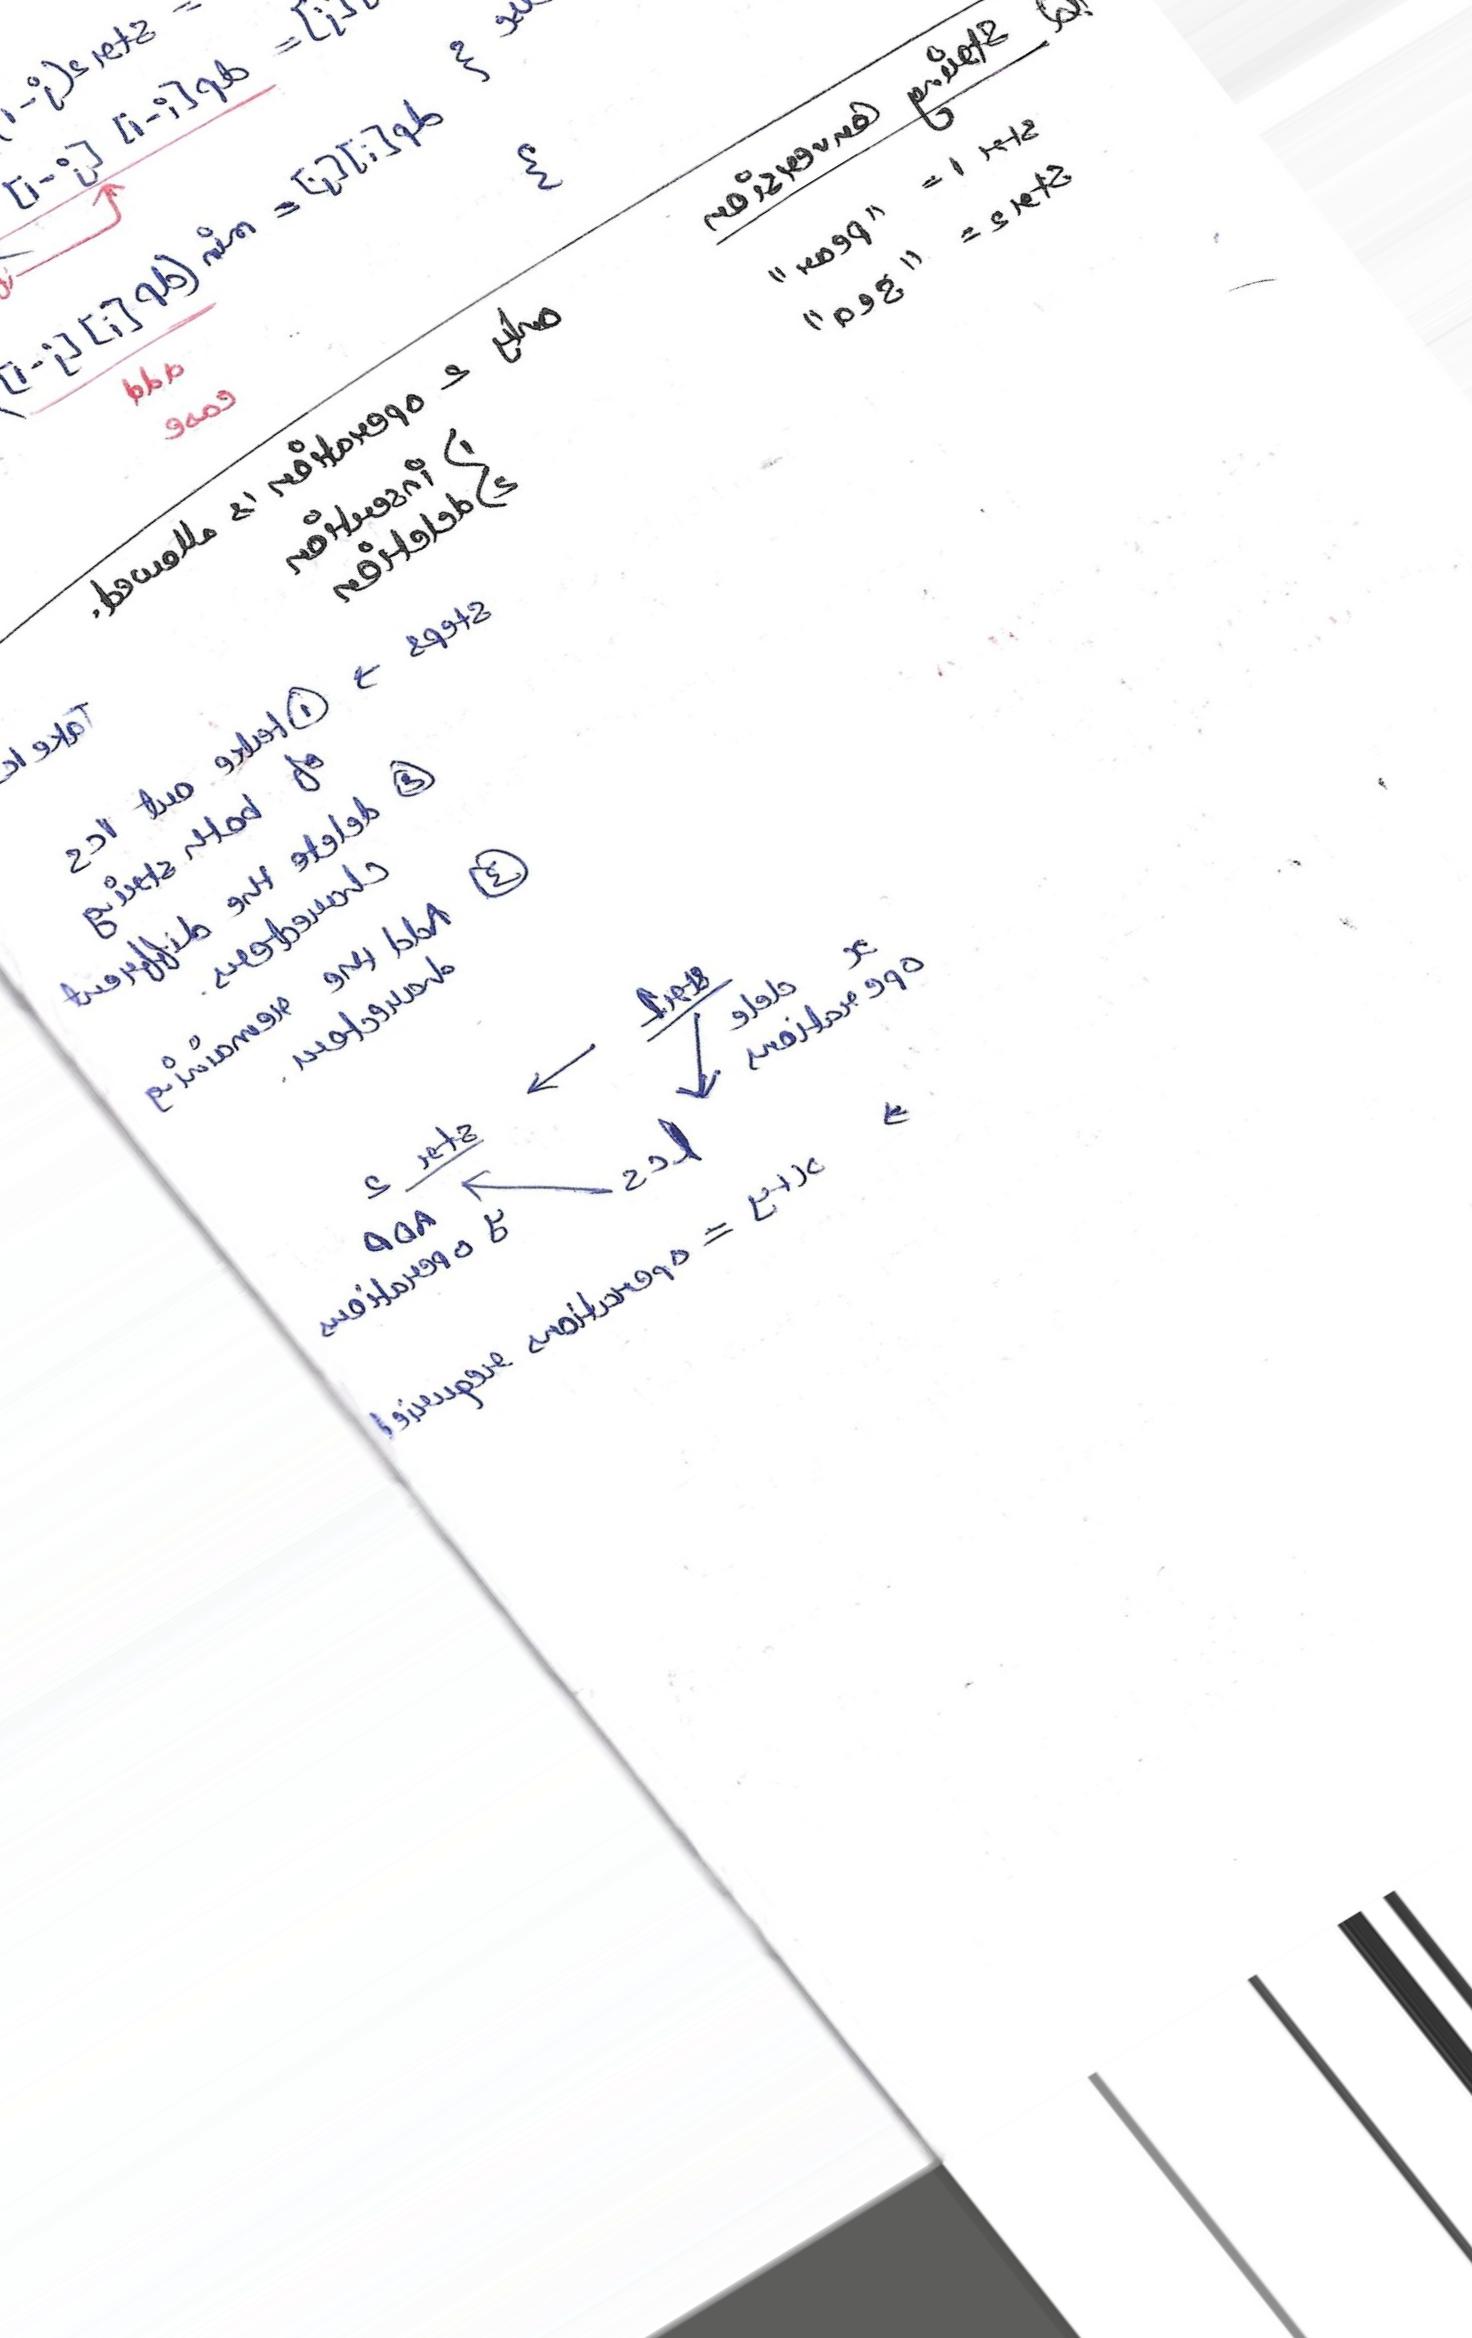 = str2(j-1)
= dp[i-1][j-1]
}
dp[i][j] = min(dp[i][j-1]
add
case
}
Q) String Conversion
str 1 =
str 2 =
only 2 operation is allowed.
1) insertion
2) deletion
Steps → ① take out lcs
of both string
② delete the different
characters.
③ Add the remaining
characters.
Take
str1 → str 2
x dele operation
ADD y operation
lcs
→ x+y = operation required